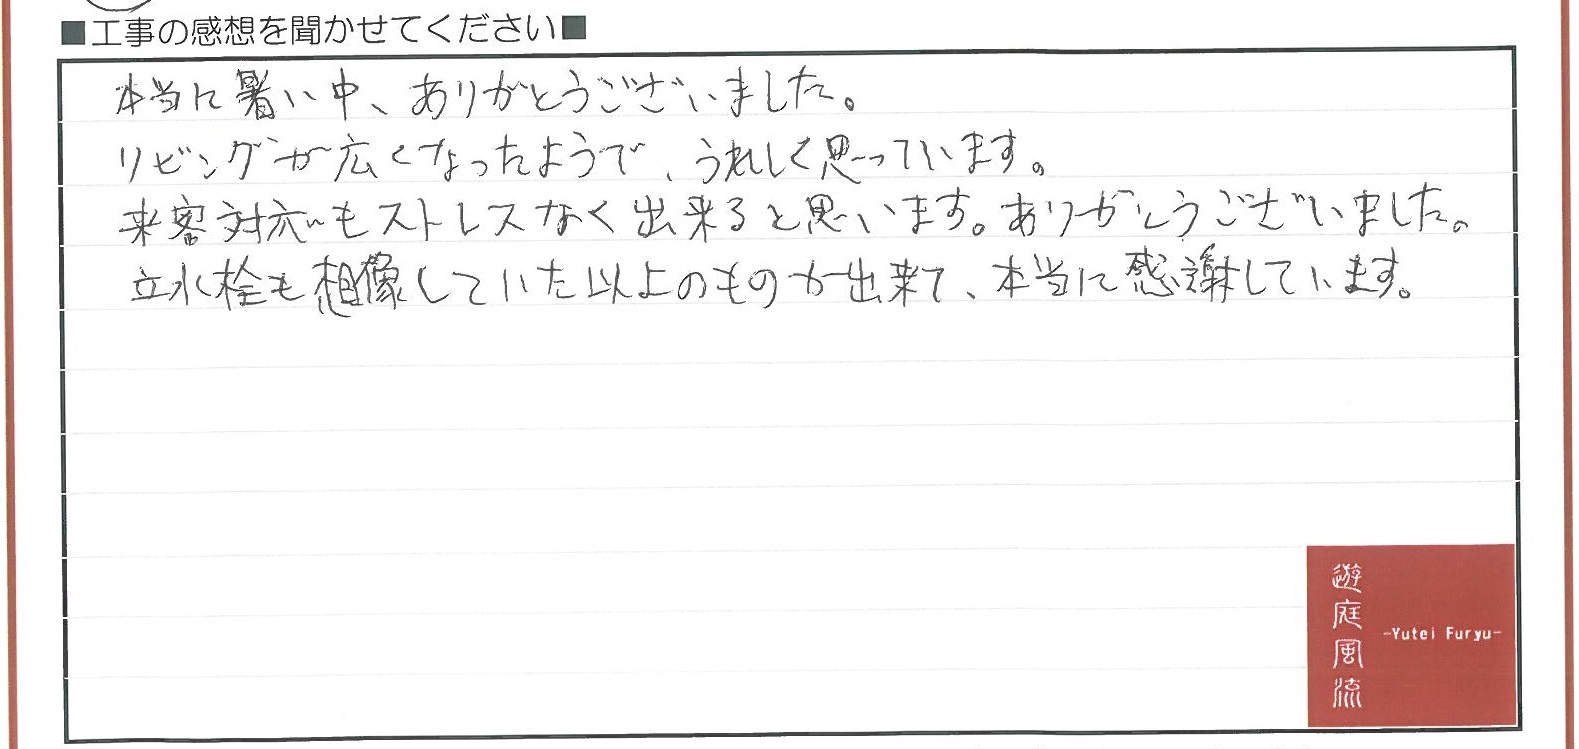 ■工事の感想を聞かせてください■
本当に暑い中、ありがとうございました。
リビングが広くなったようで、うれしく思っています。
来客対応もストレスなく出来ると思います。ありがとうございました。
立水栓も想像していた以上のものが出来て、本当に感謝しています。
遊庭風流
-Yutei Furyu-